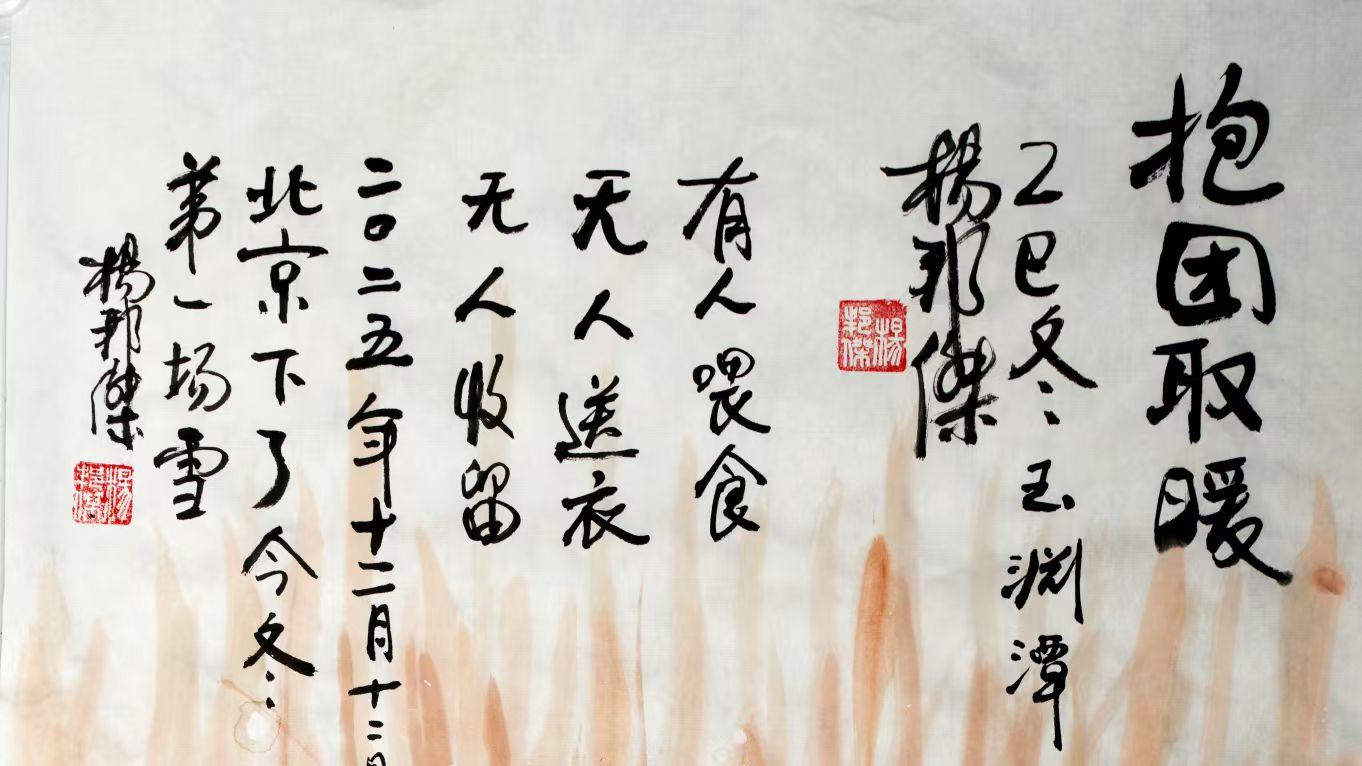 抱团取暖
乙巳冬：玉渊潭
楊邦傑
楊邦傑
有人喂食
无人送衣
无人收留
二〇二五年十二月十二日
北京下了今冬：
第一场雪
楊邦傑
楊邦傑